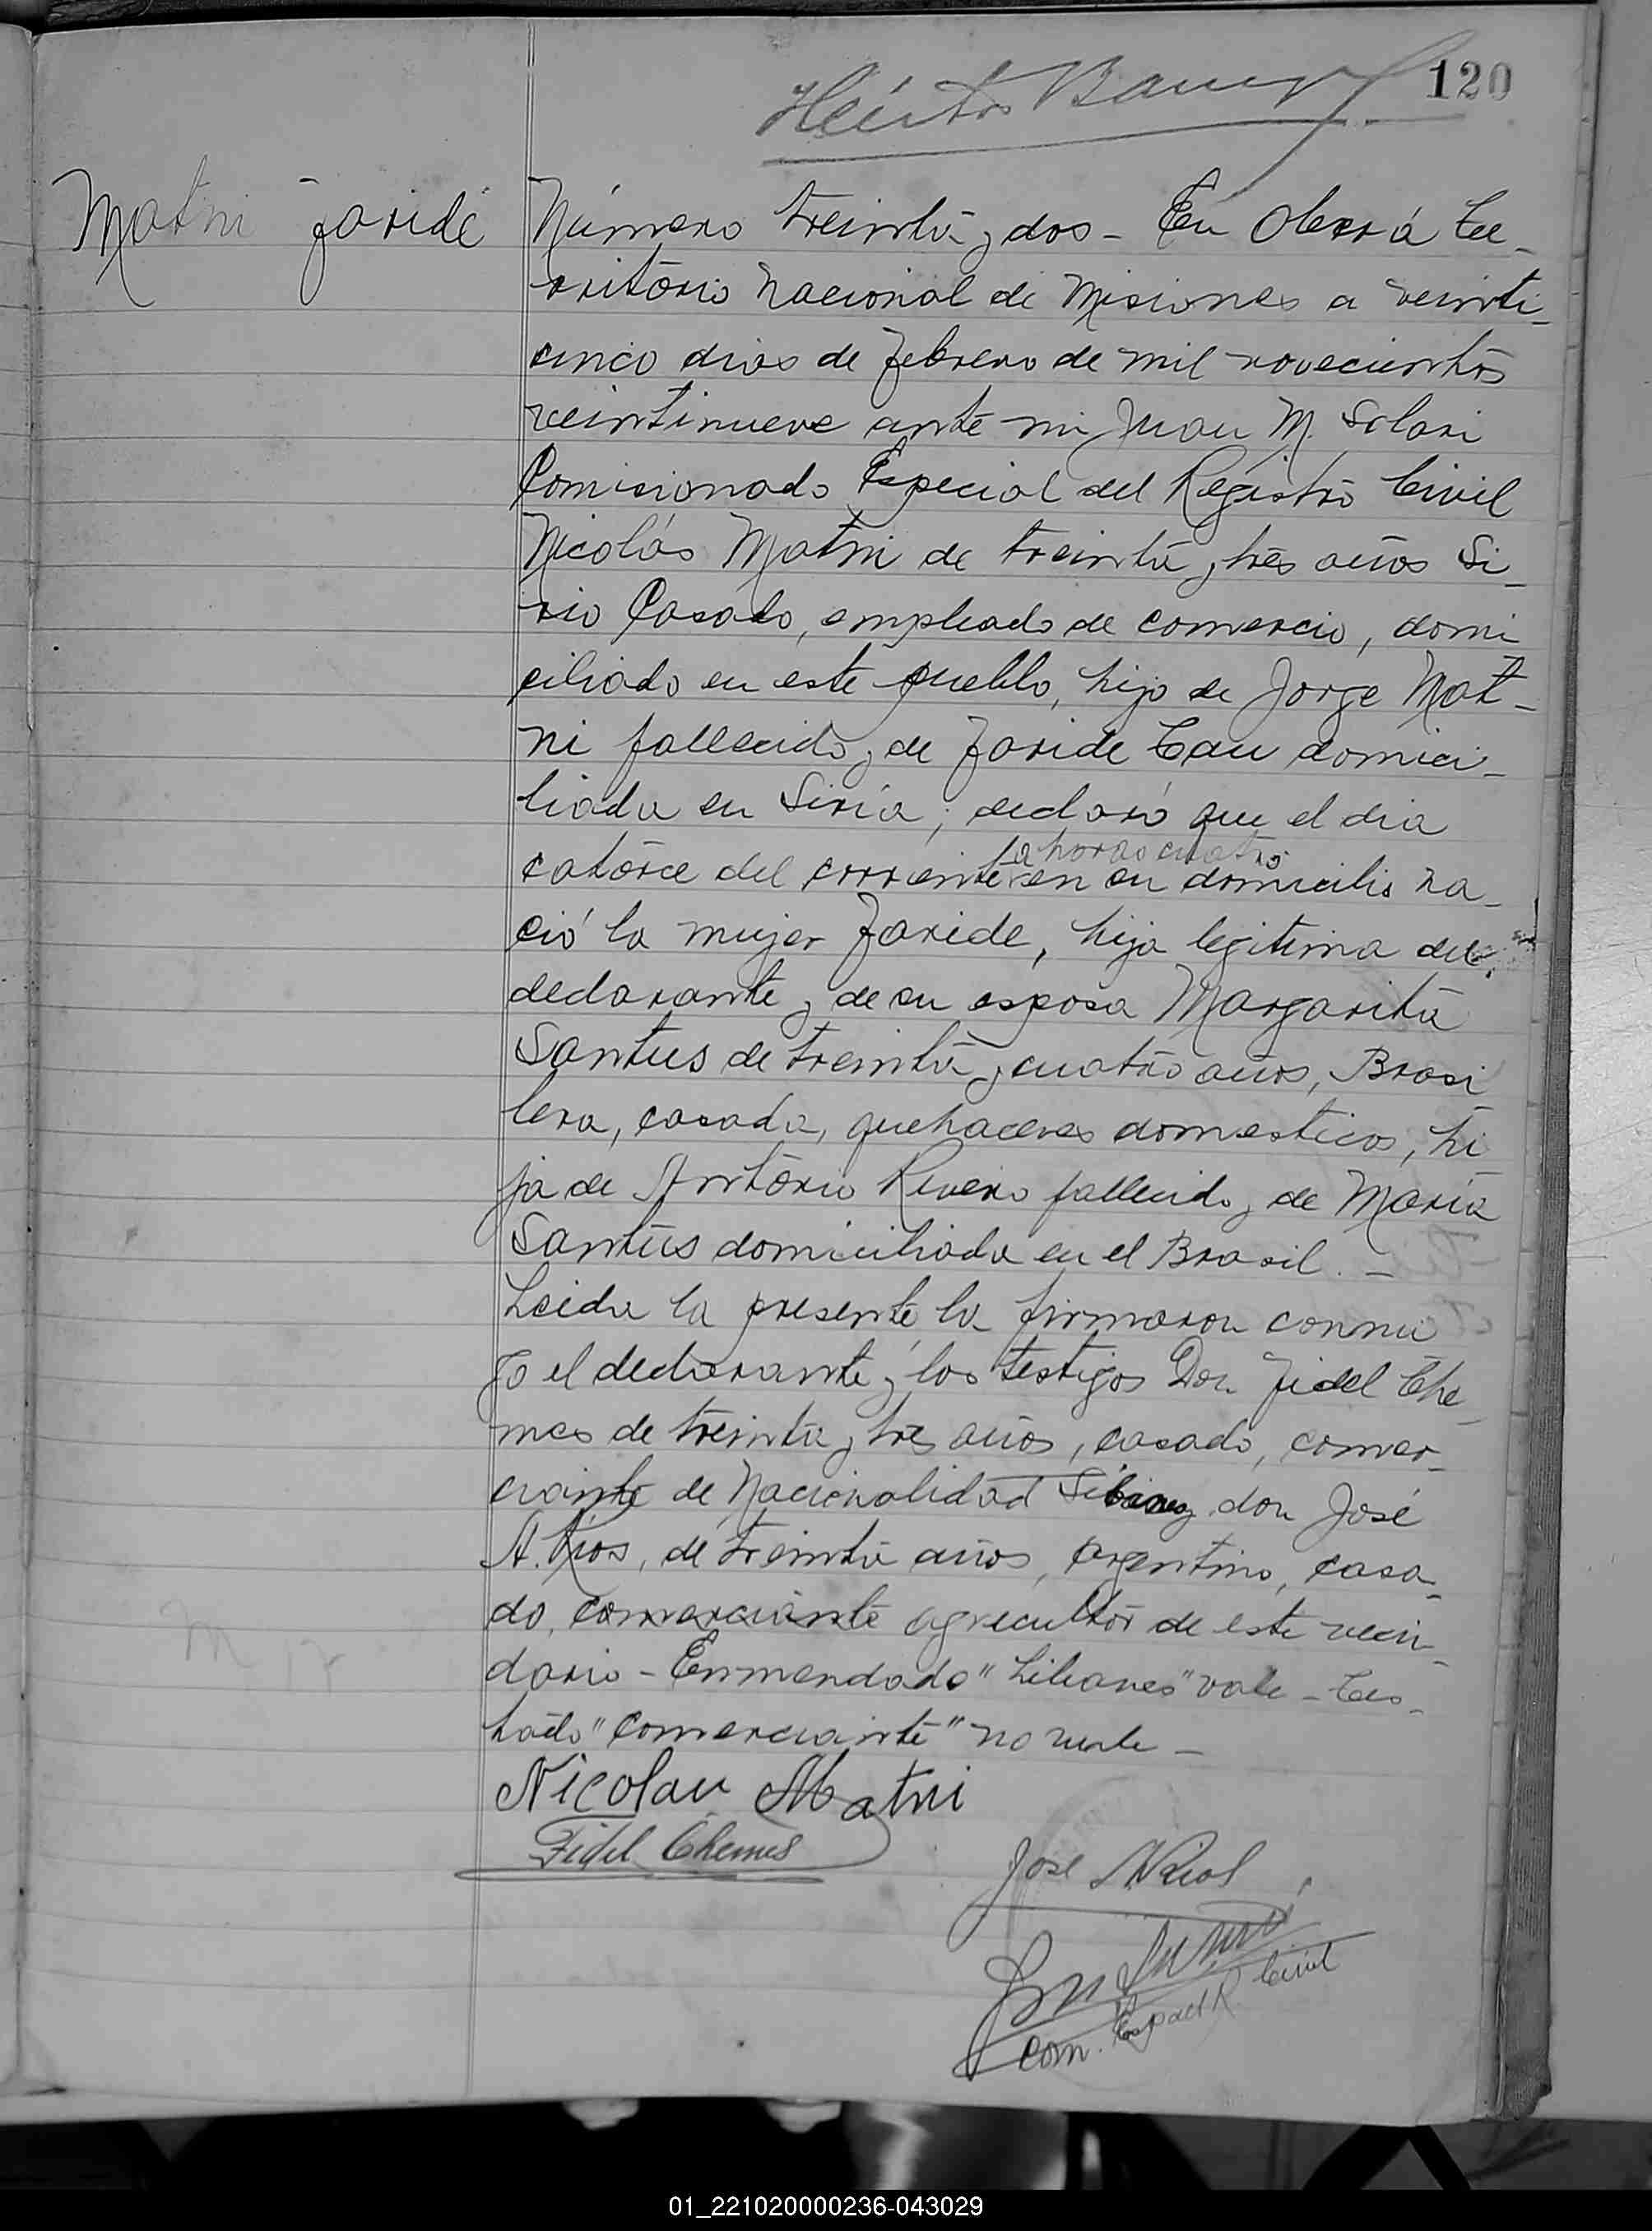 120
Matni Faride
Número treinta y dos - En Oberá Te-
rritorio Nacional de Misiones a veinti-
cinco dias de Febrero de mil novecientos
veintinueve ante mi Juan M. Solari
Comisionado Especial del Registro Civil
Nicolás Matni de treinta y tres años Si-
rio Casado, empleado de comercio, domi
ciliado en este pueblo, hijo de Jorge Mat-
ni fallecido y de Faride domici-
liada en Siria; declaró que el dia
a horas cuatro
catorce del corriente en su domicilio na-
ció la mujer Faride, hija legitima del
declarante y de su esposa Margarita
Santus de treinta y cuatro años, Brasi
lera, casada, quehaceres domesticos, hi
ja de Antonio Rivero fallecido y de María
Santus domiciliada en el Brasil. -
Leida la presente la firmaron conmi
go el declarante y los testigos Don Fidel Che-
mes de treinta y tres años, casado, comer-
ciante de Nacionalidad Libanes y don José
A. Rios, de treinta años, argentino, casa-
do, comerciante agricultor de este vecin-
dario - Enmendado "Libanes" vale - Tes-
tado "comerciante" no vale -
Nicolau Matni
Fidel Chemes
José A Rios
Com. Esp del R Civil
01_221020000236-043029